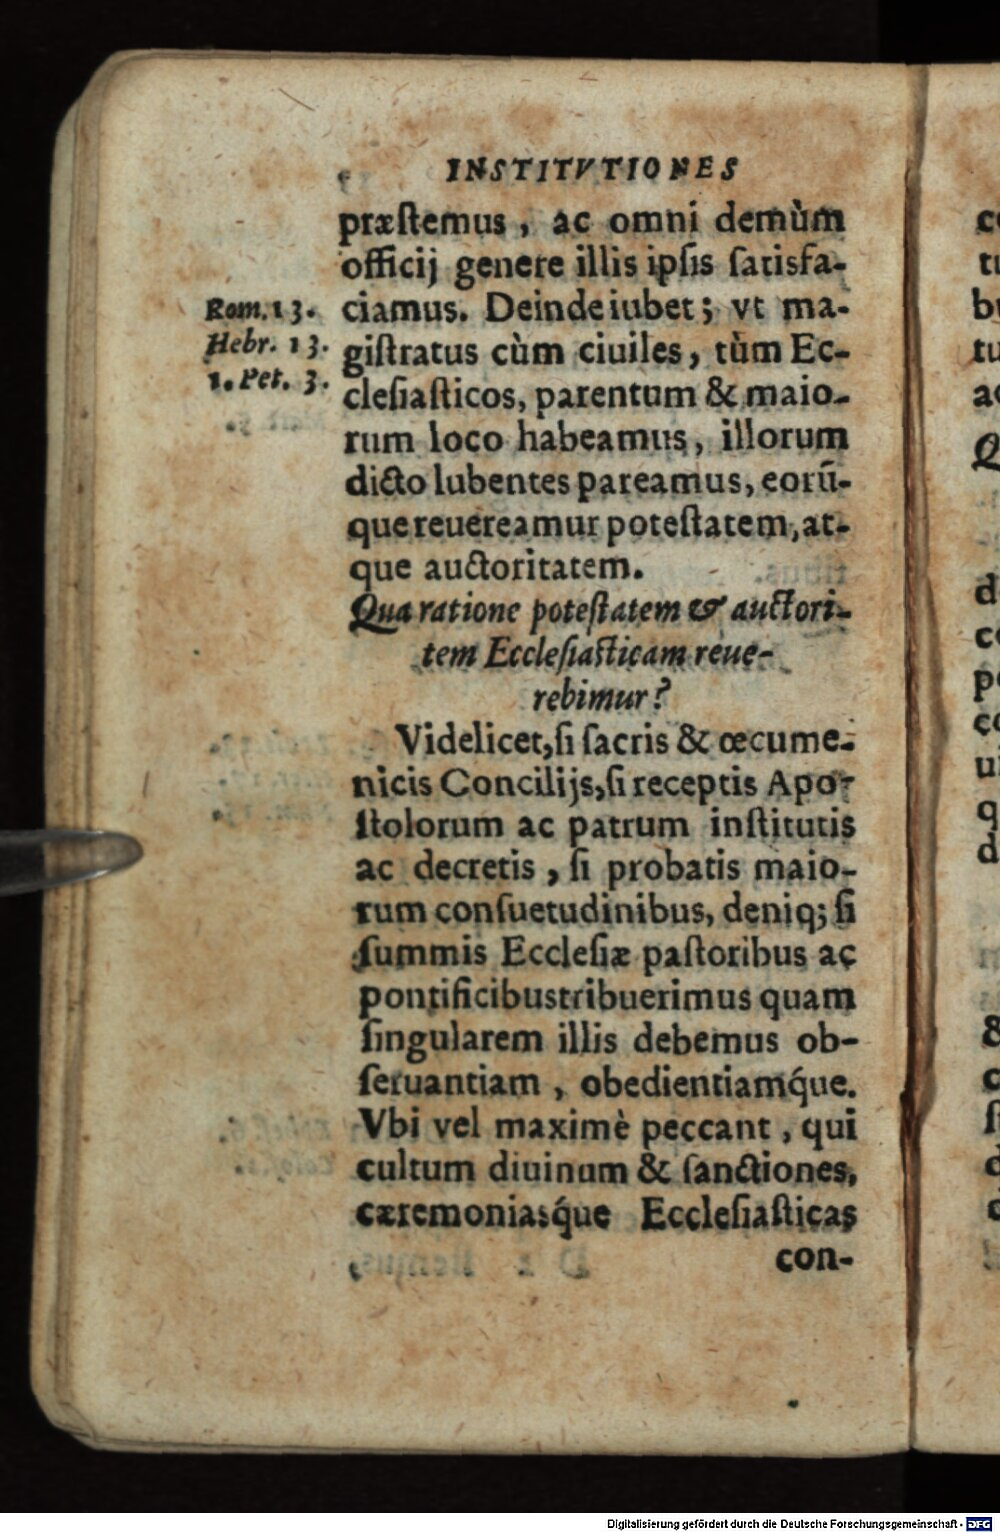 INSTITVTIONES
præstemus, ac omni demùm
officij genere illis ipsis satisfa-
Rom. 13.
Hebr. 13.
1. Pet. 3.
ciamus. Deinde iubet; vt ma-
gistratus cùm ciuiles, tùm Ec-
clesiasticos, parentum & maio-
rum loco habeamus, illorum
dicto lubentes pareamus, eorū-
que reuereamur potestatem, at-
que auctoritatem.
Qua ratione potestatem & auctori-
tem Ecclesiasticam reue-
rebimur?
Videlicet, si sacris & œcume-
nicis Concilijs, si receptis Apo-
stolorum ac patrum institutis
ac decretis, si probatis maio-
rum consuetudinibus, deniq; si
summis Ecclesiæ pastoribus ac
pontificibus tribuerimus quam
singularem illis debemus ob-
seruantiam, obedientiamq́ue.
Vbi vel maximè peccant, qui
cultum diuinum & sanctiones,
cæremoniasq́ue Ecclesiasticas
con-
Digitalisierung gefördert durch die Deutsche Forschungsgemeinschaft - DFG